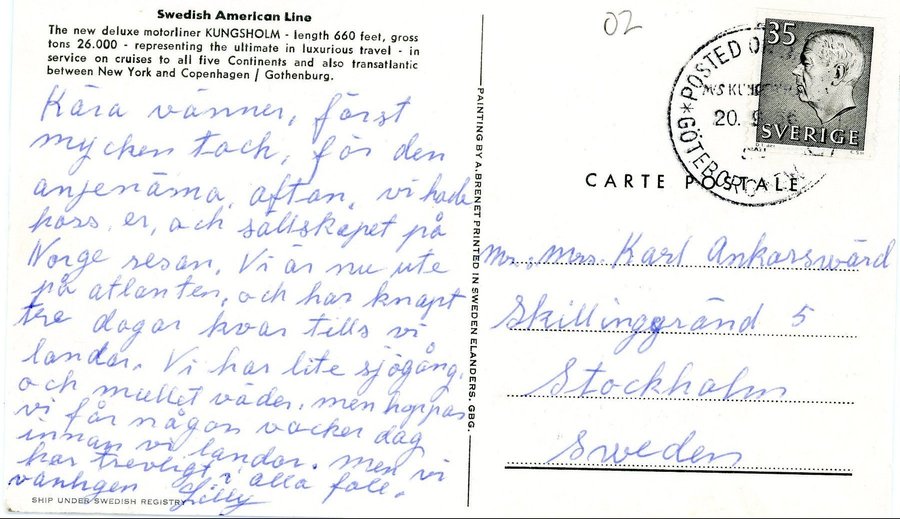 Swedish American Line
The new deluxe motorliner KUNGSHOLM - length 660 feet, gross
tons 26.000 - representing the ultimate in luxurious travel - in
service on cruises to all five Continents and also transatlantic
between New York and Copenhagen / Gothenburg.
Kära vänner, först
mycken tack, för den
angenäma, afton, vi hade
hoss, er, och sällskapet på
Norge resan. Vi är nu ute
på atlanten, och har knapt
tre dagar kvar tills vi
landar. Vi har lite sjögång,
och mullet väder, men hoppas
vi får någon vacker dag
innan vi landar. men vi
har trevligt i alla fall.
vänligen Lilly
SHIP UNDER SWEDISH REGISTRY
PAINTING BY A. BRENET PRINTED IN SWEDEN ELANDERS, GBG.
02
POSTED
M/S
20.
GÖTEBORG
35
SVERIGE
CARTE POSTALE
Mr., Mrs. Karl Ankarswärd
Skillinggränd 5
Stockholm
Sweden